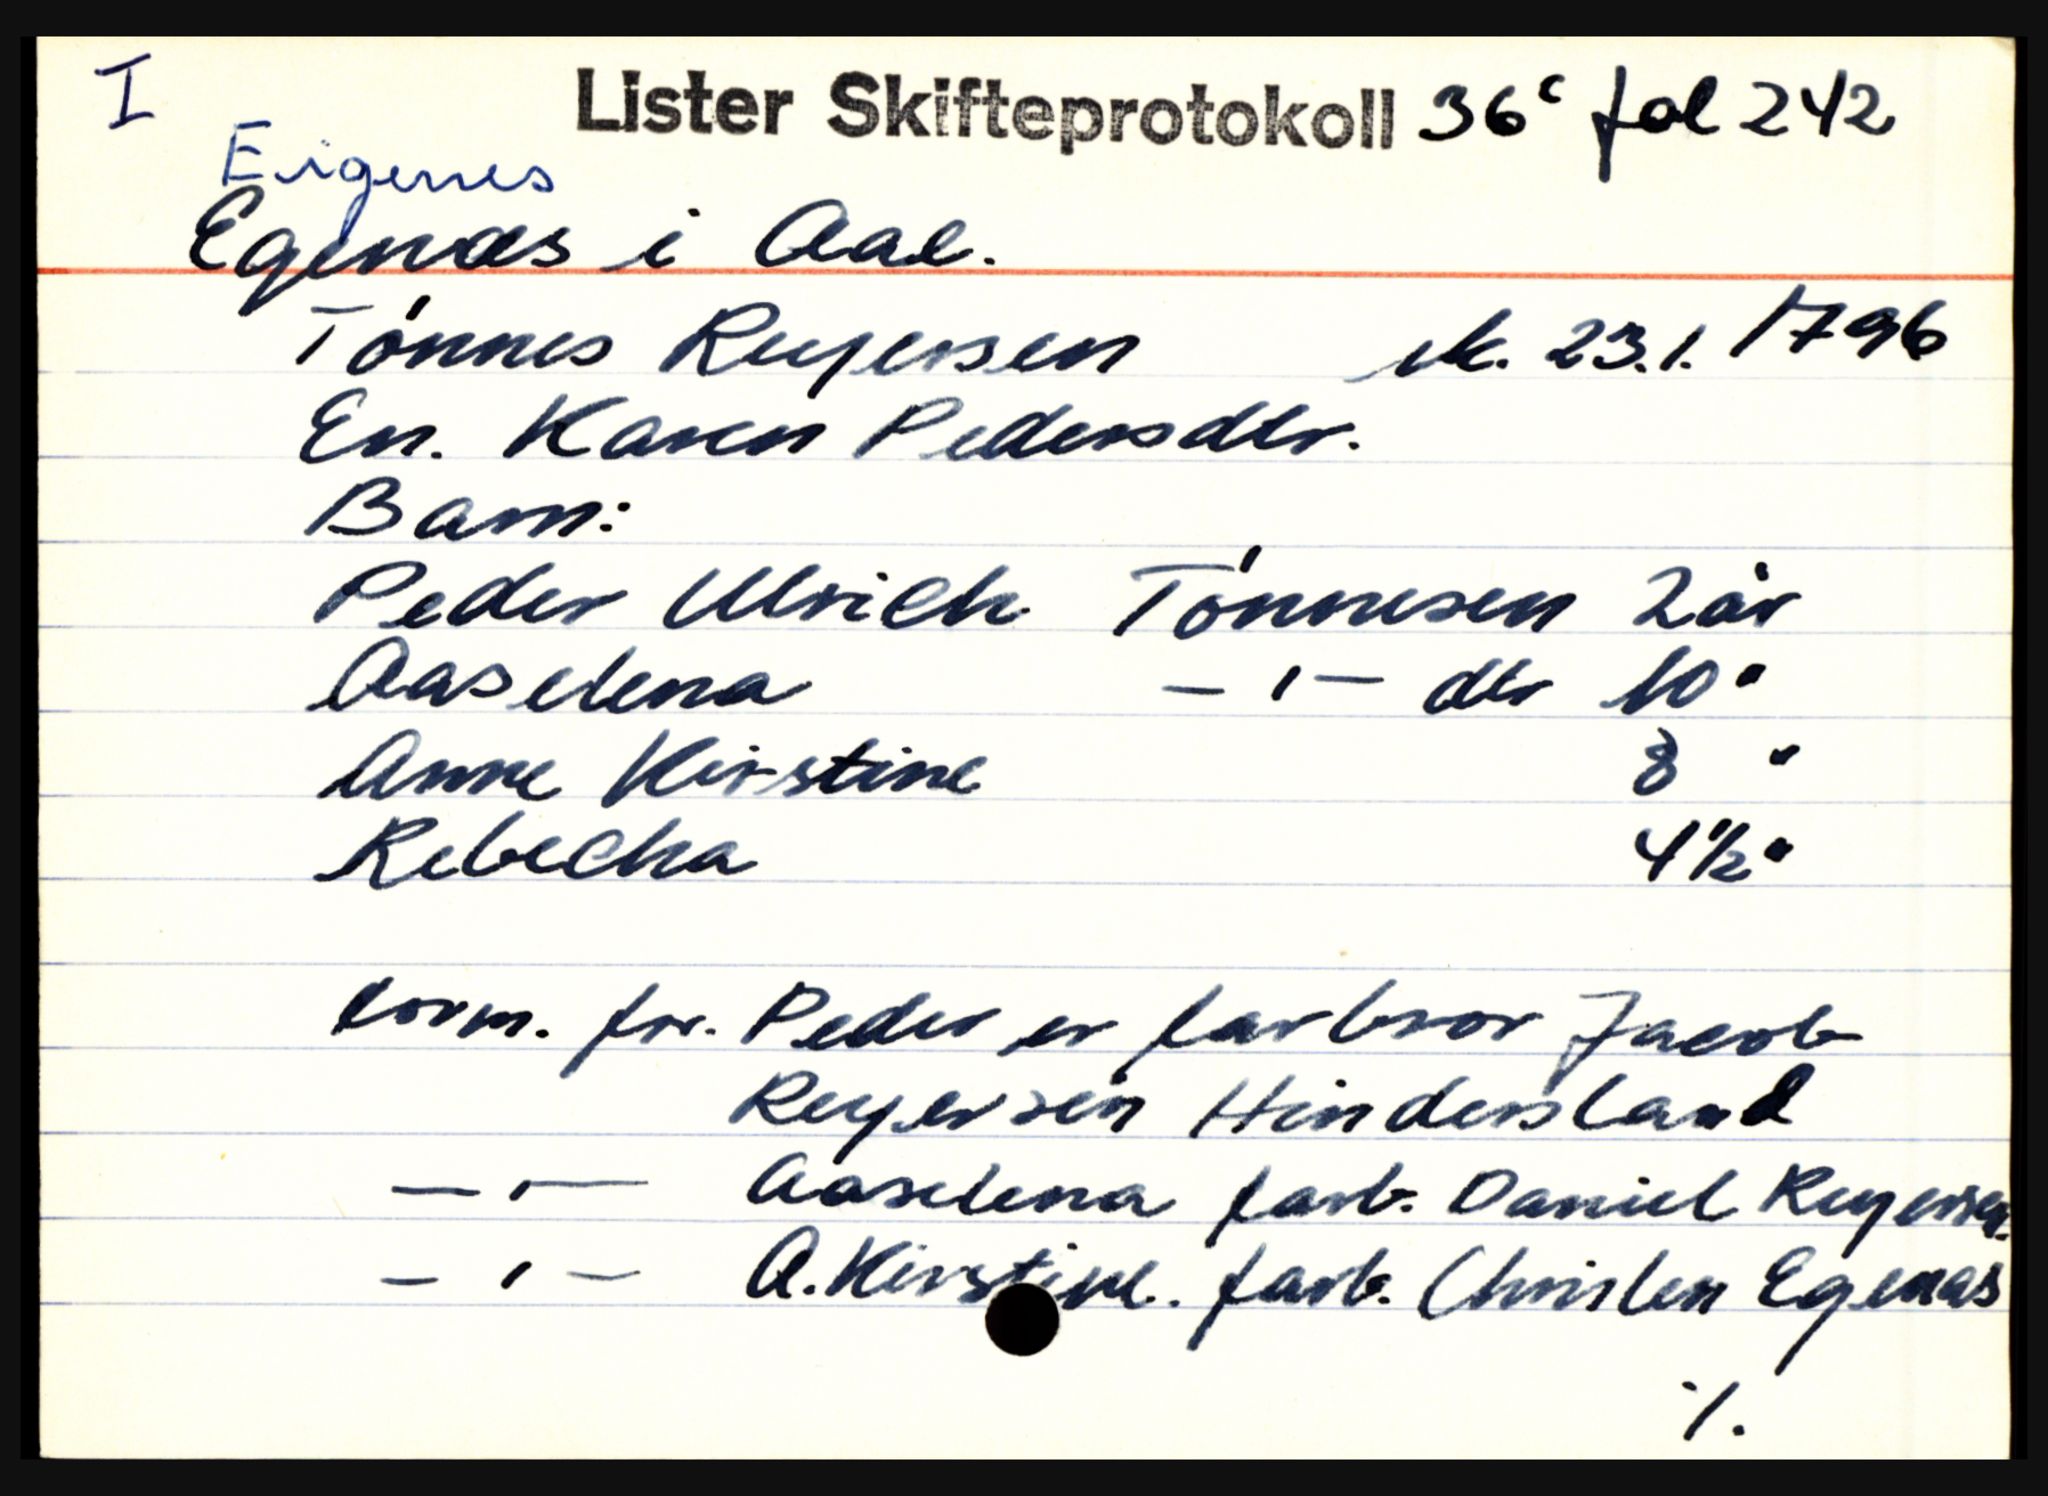 I
Lister Skifteprotokoll 36c fol 242
Eigenes
Egenæs i Aal.
Tónnes Reyersen sk. 23.1. 1796
En. Karen Pedersdtr.
Barn:
Peder Ulrich Tónnesen 2 år
Aaselena — ı — dtr 10 "
Anne Kirstine 8 "
Rebecka 4 1/2 "
form. for. Peder er farbror Jacob
Reyersen Hindersland
— ı — Aaselena farb. Daniel Reyersen.
— ı — A. Kirstine. farb. Christen Egenæs
·/.